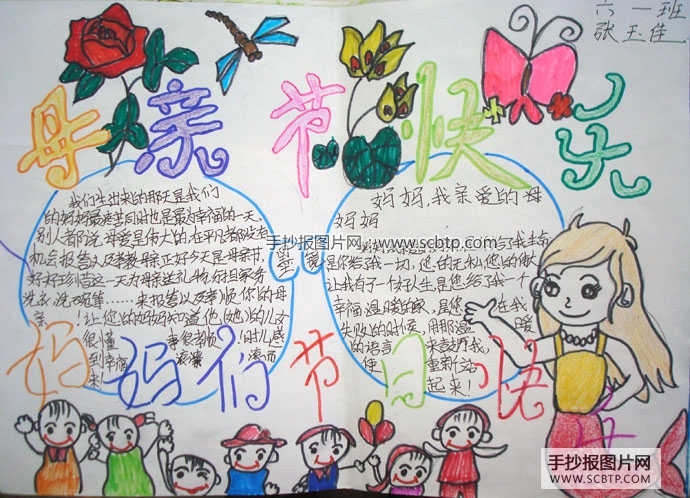 六一班
张玉佳
母亲节快乐
我们生出来的那天是我们
的妈妈最痛苦同时也是最为幸福的一天,
别人都说母爱是伟大的,在平凡都没有
机会报答以及孝敬亲正好今天是母亲节,
好好珍惜这一天为母亲送礼物分担家务
洗衣、洗碗筷……来报答以及孝顺你的母
亲!让您的妈妈知道他(她)的儿女
很懂事很孝顺!时儿感
到幸福滚滚滚而
来!
妈妈,我亲爱的母
妈妈
是你给我一切,您的无私您的伟大
让我有了一个好人生是您给了我一个
幸福温暖的家,是您在我
失败的时候,用那温暖
的语言来鼓舞我,
使重新站
起来!
妈妈们节日
手抄报图片网
www.scbtp.com
手抄报图片网
WWW.SCBTP.COM